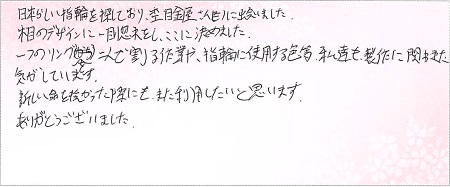 日本らしい指輪を探しており、杢目金屋さんに出会いました。
木目のデザインに一目惚れをし、ここに決めました。
一つのリングから二人で割る作業や、指輪に使用する色等、私達も製作に関われた
気がしています。
新しい命を授かった際にも、また利用したいと思います。
ありがとうございました。